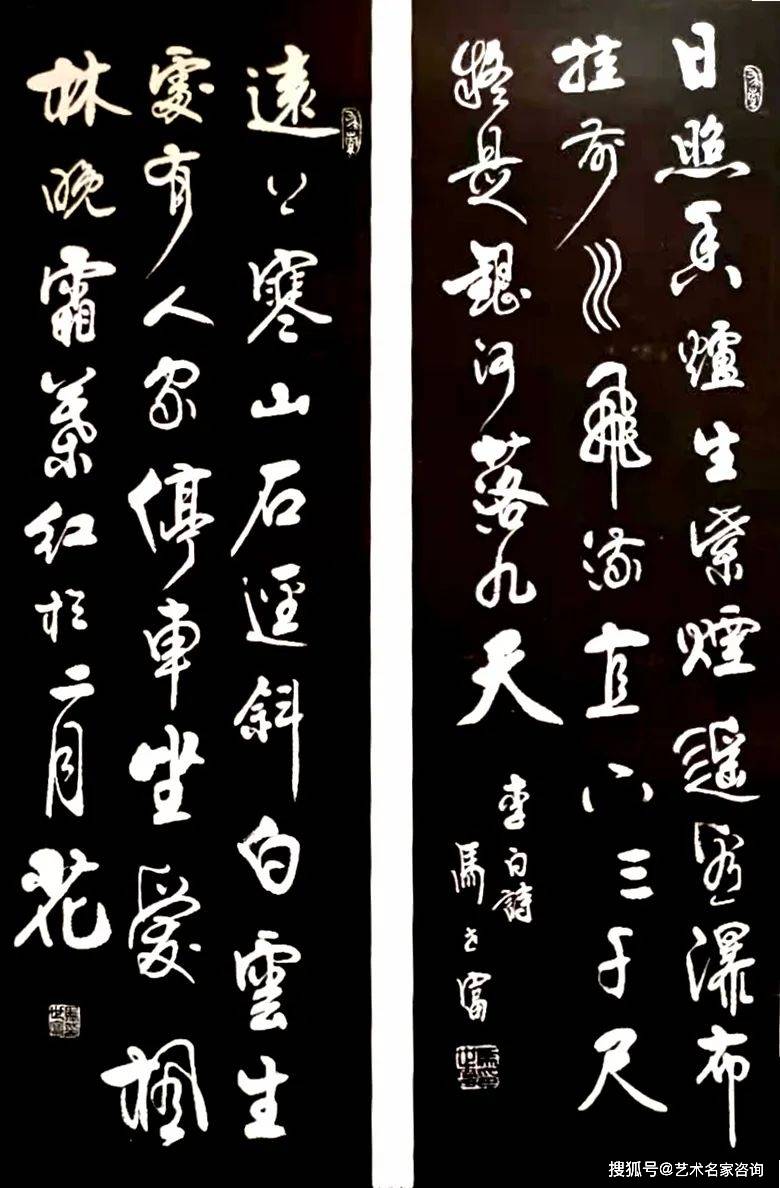 日照香爐生紫煙遙看瀑布
挂前川飛流直下三千尺
疑是銀河落九天
李白詩
馬世富
遠上寒山石徑斜白雲生
處有人家停車坐愛楓
林晚霜葉紅於二月花
搜狐号@艺术名家咨询